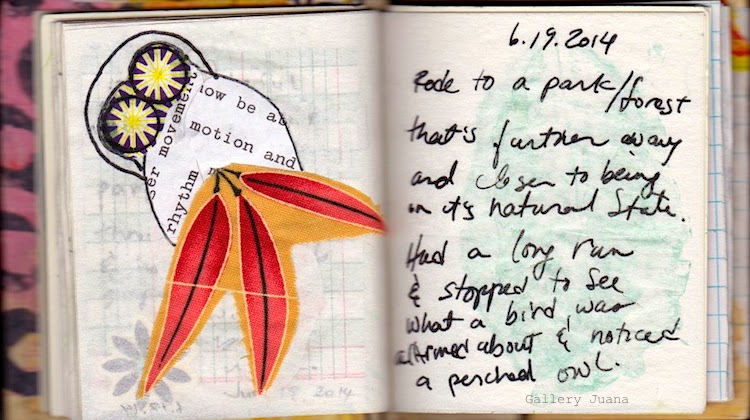 ow be at
motion and
ser movement
rhythm
6.19.2014
Rode to a park/forest
that's further away
and closer to being
in it's natural State.
Had a long run
& stopped to see
what a bird was
alarmed about & noticed
a perched owl.
Gallery Juana
2014